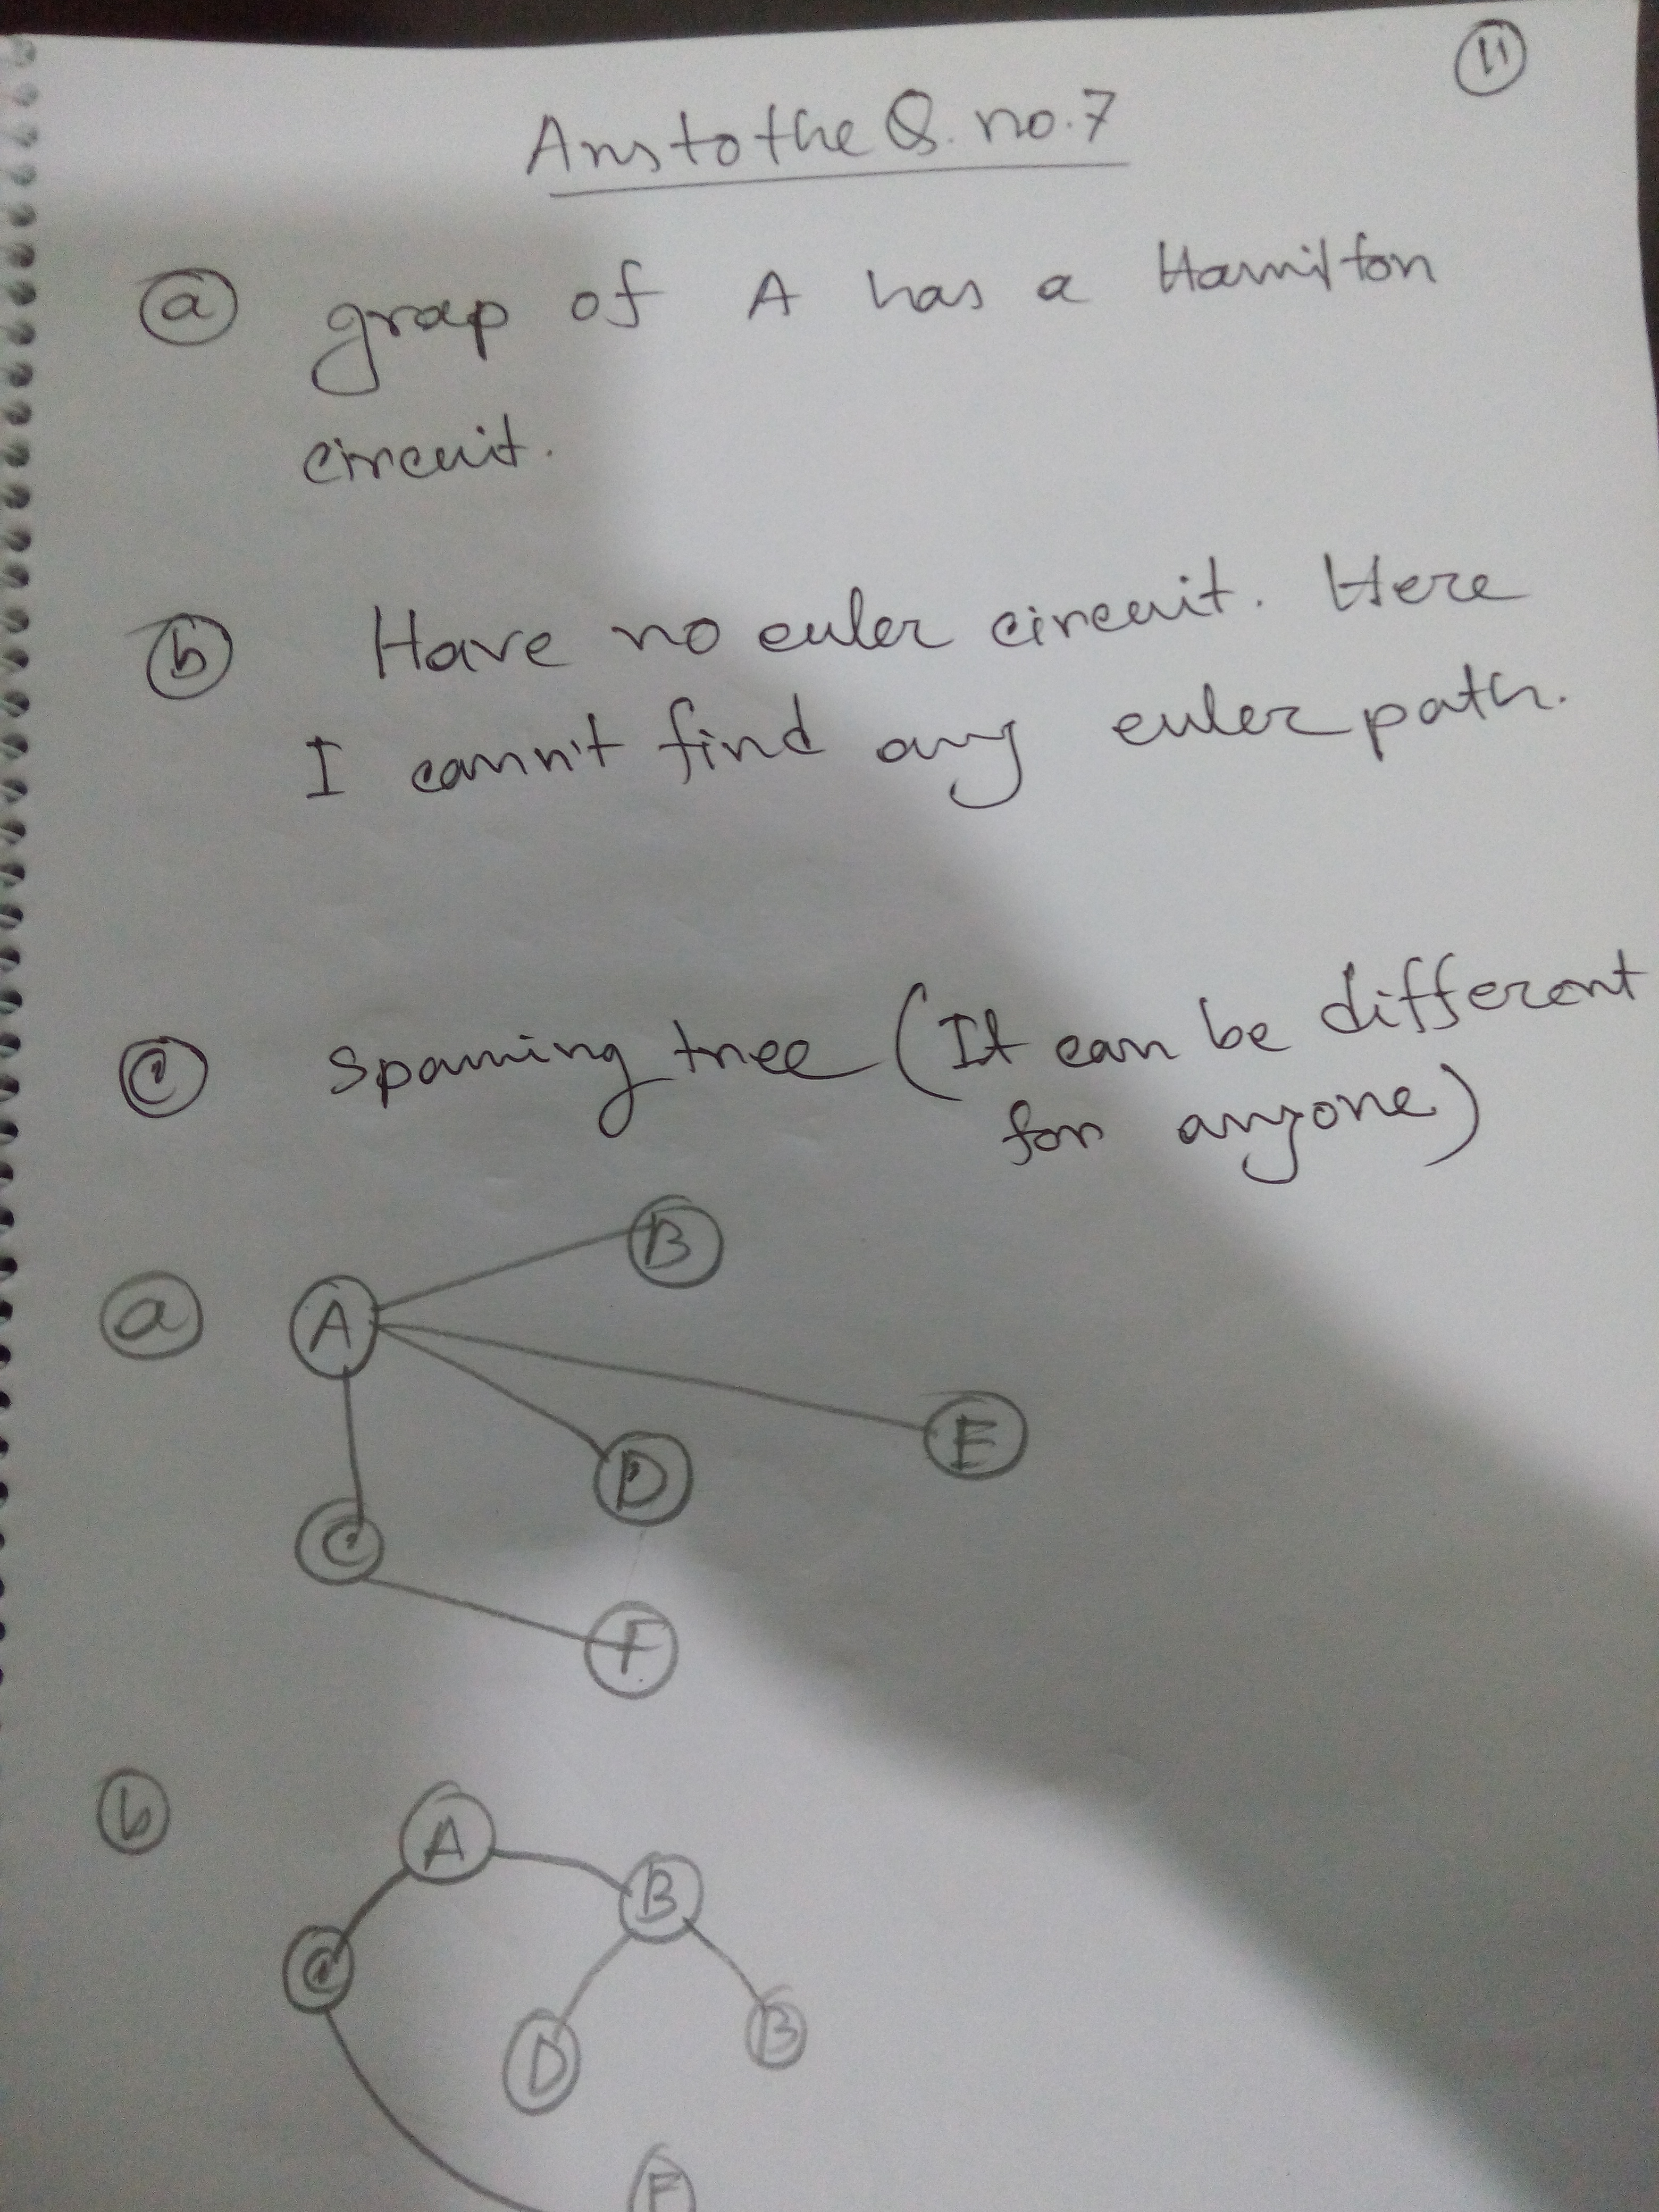 11
Ans to the Q. no. 7
a grap of A has a Hamilton
circuit.
b Have no euler circuit. Here
I cann't find any euler path.
c spanning tree (It can be different
for anyone)
B
a A
E
D
C
F
b A
B
C
D B
F